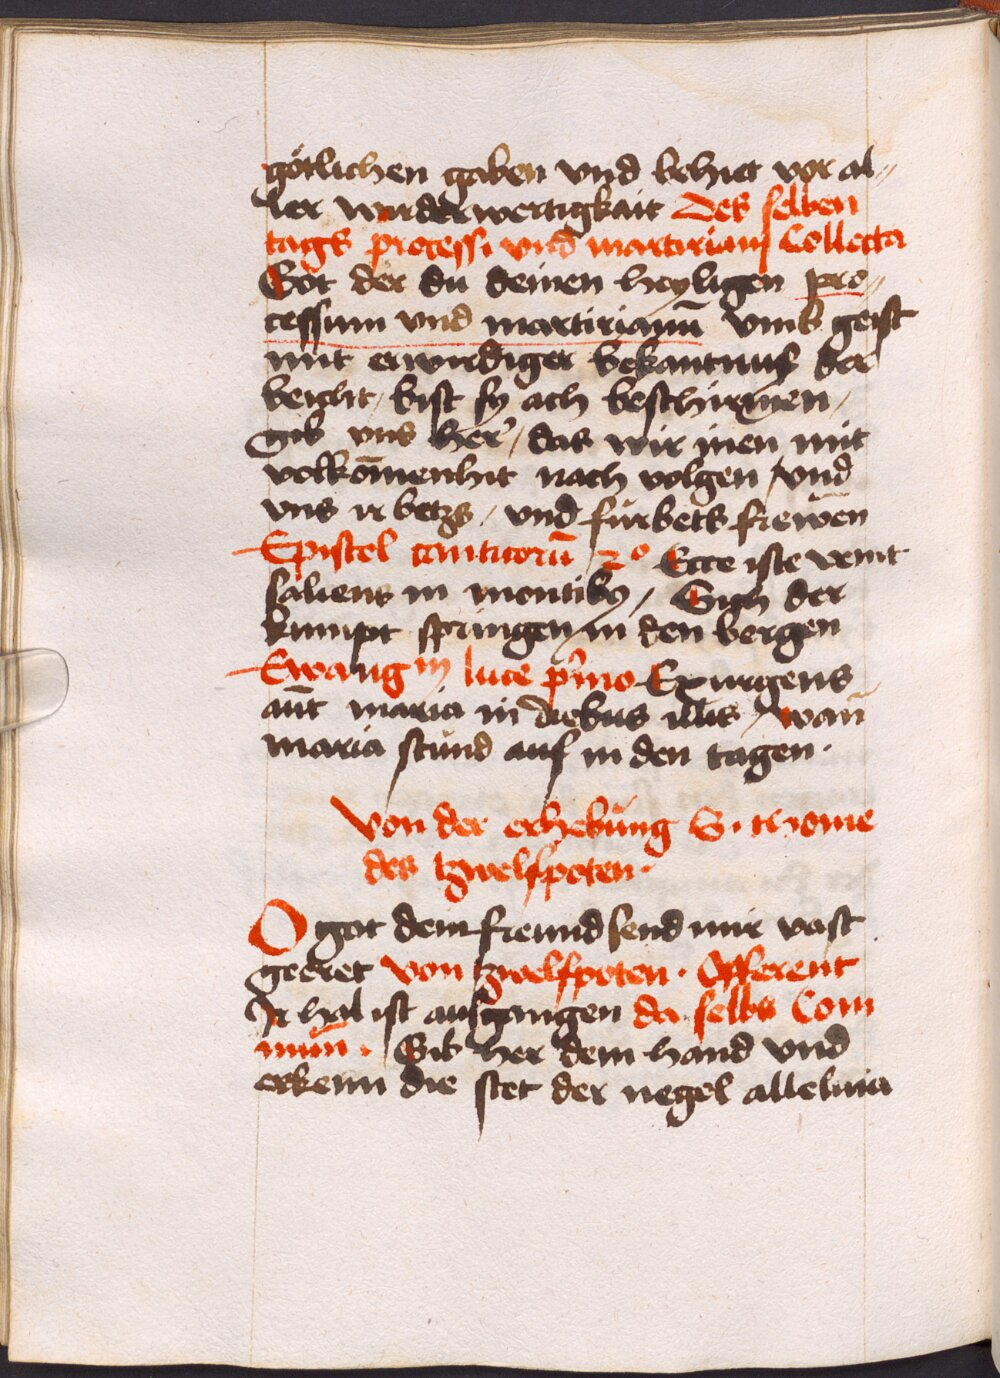 götlichen gaben vnd behiet vor al-
ler widerwertigkait Des selben
tags processi vnd martirians Collecta
Got der du deinen heyligen pro-
cessum vnd martirianū vmb geist
mit erwirdiger bekantnus der
beicht / bist sy ach beschirmen /
gib vns her / das wir jnen mit
volkōmenhit nach volgen / vnd
vns ir betzs / vnd fürbets frewen
Epistel canticorū 2º Ecce iste venit
saliens in montibꝫ / Sich der
kumpt springen in den bergen
Ewang in luce p'mo Exurgens
aūt maria in diebus illis / wan
maria stünd auf in den tagen ·
Von der erhebung S · thome
des tzwelfpoten ·
O got dein freund send mir vast
geeret von tzwelfpoten · Offerent
Ir hal ist ausgangen da selbs Com
mun · Gib her dein hand vnd
erkenn die stet der negel alleluia